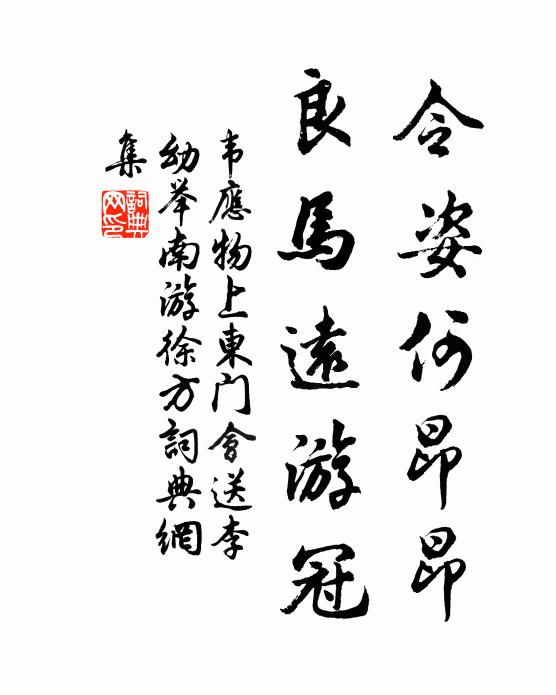 令姿何昂昂
良馬遠游冠
韦應物上東门會送李
幼举南游徐方詞典網
集
詞典
网印